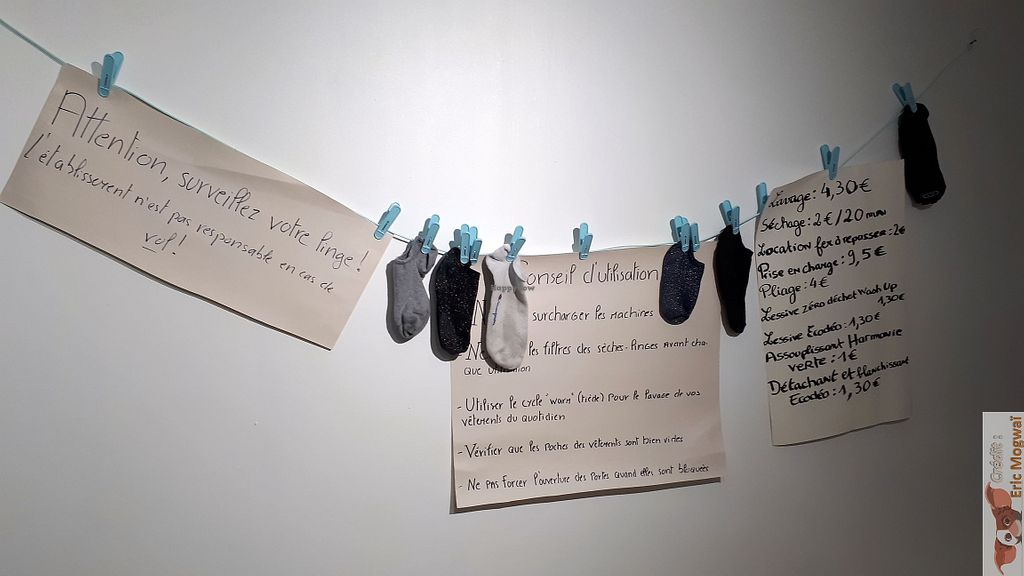 Attention, surveillez votre linge !
l'établissement n'est pas responsable en cas de
vol !
onseil d'utilisation
N surcharger les machines
Ne les filtres des sèches-linges avant cha-
que utilisation
- Utiliser le cycle "warm" (tiède) pour le lavage de vos
vêtements du quotidien
- Vérifier que les poches des vêtements sont bien vides
- Ne pas forcer l'ouverture des portes quand elles sont bloquées
Lavage : 4,30€
Séchage : 2€/20 min
Location fer à repasser : 2€
Prise en charge : 9,5€
Pliage : 4€
Lessive zéro déchet Wash Up
1,30€
Lessive Ecodéo : 1,30€
Assouplissant Harmonie
verte : 1€
Détachant et blanchissant
Ecodéo : 1,30€
happycow
Crédit :
Eric Mogwaï